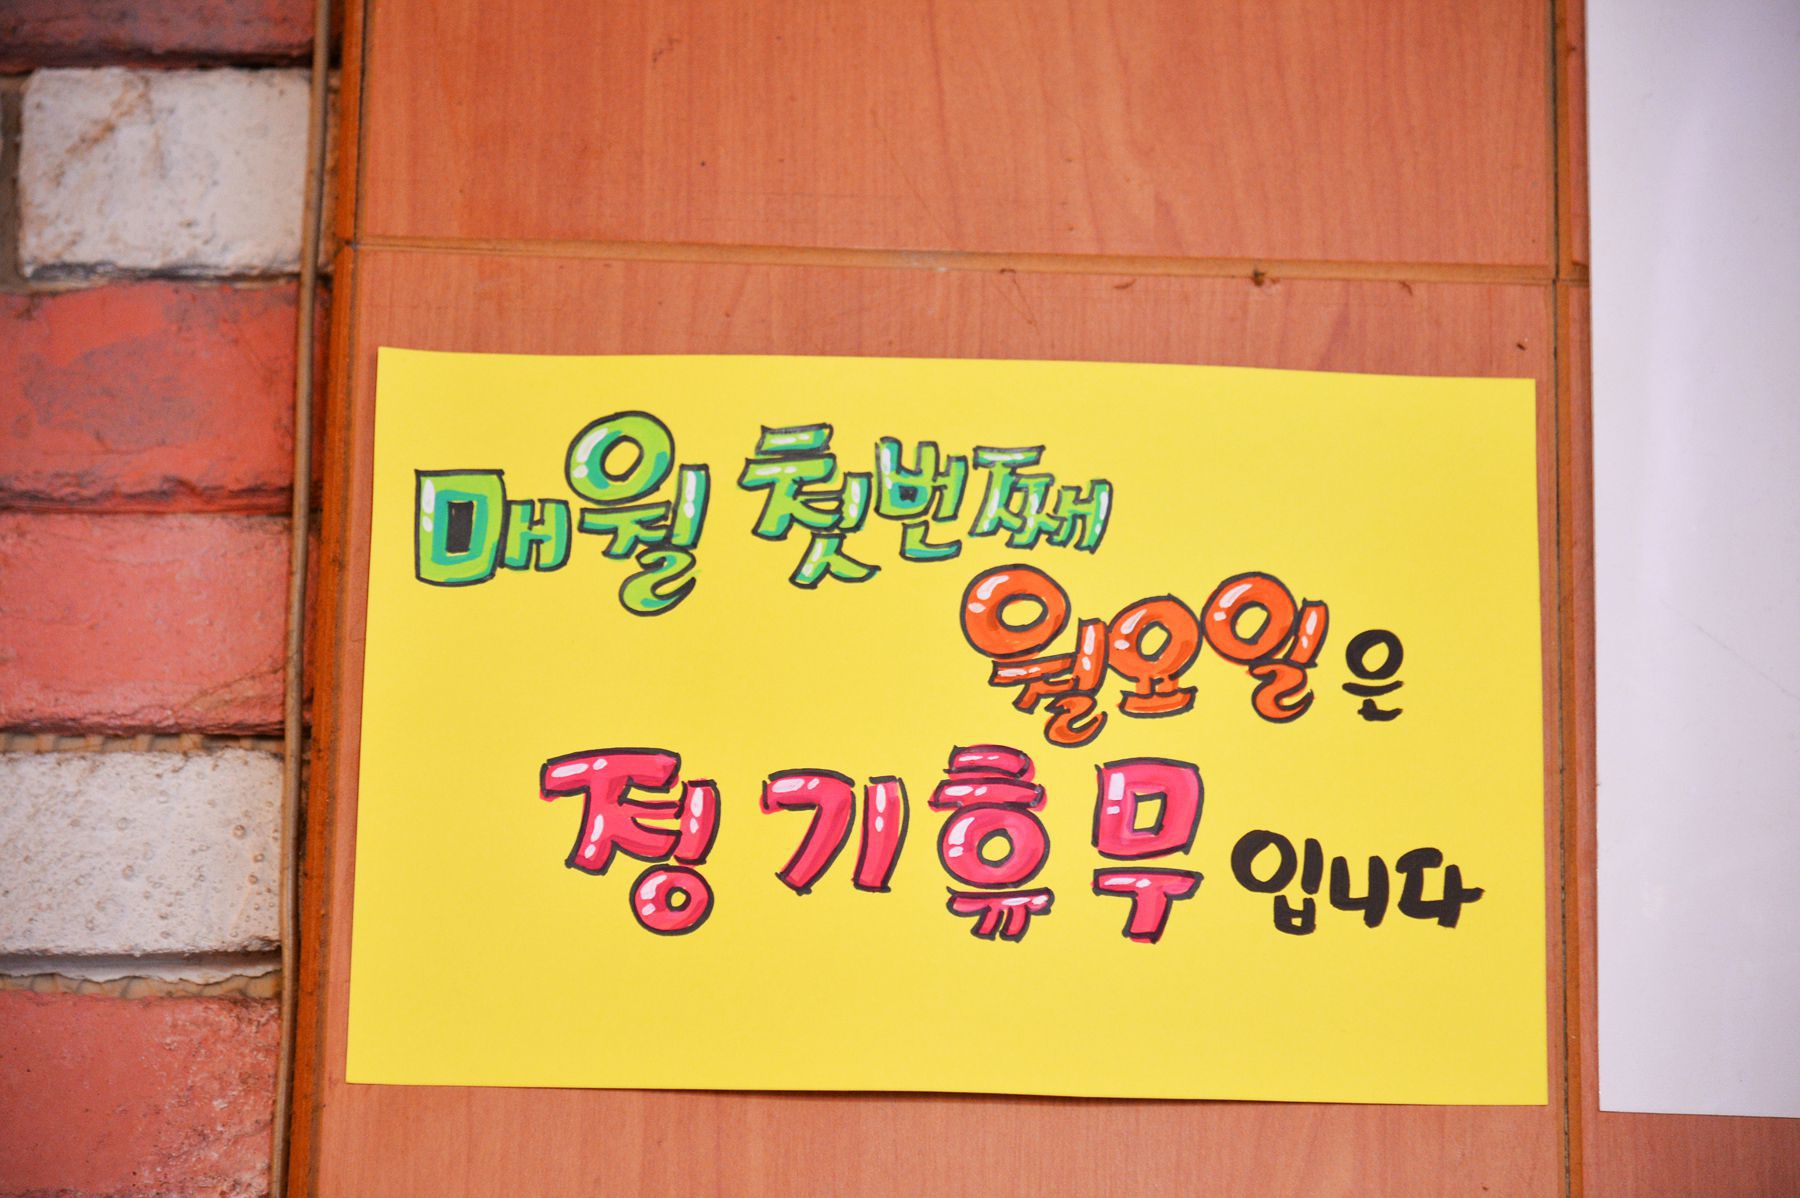 매월 첫번째
월요일은
정기휴무입니다